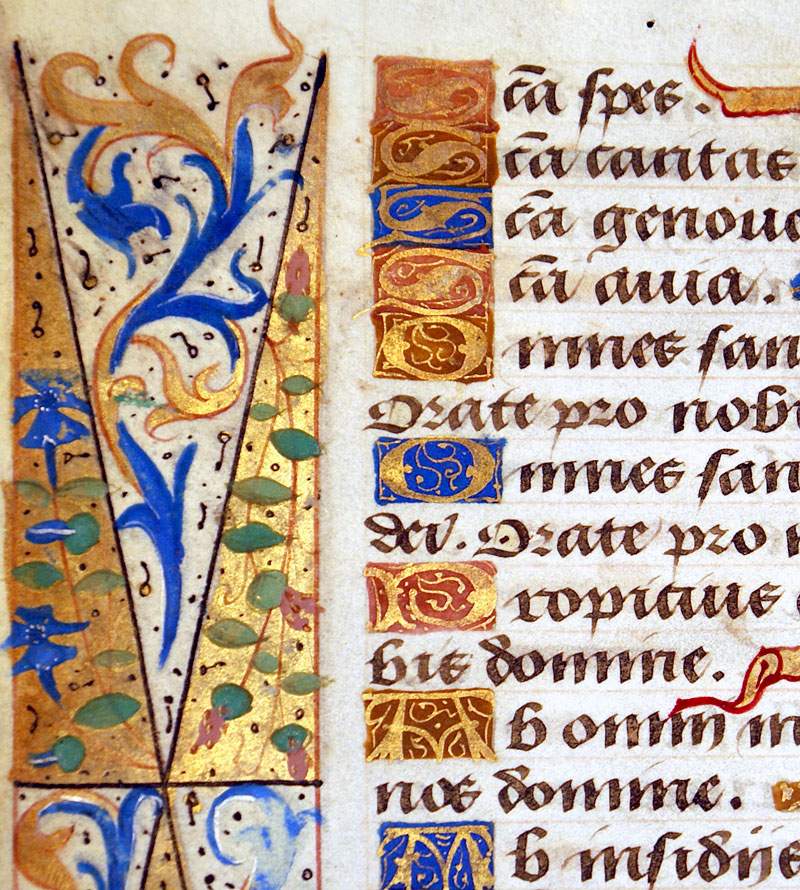 Sc̄a spes.
Sc̄a caritas
Sc̄a genoue
Sc̄a auia.
Omnes san
Orate pro nob
Omnes san
dei. Orate pro n
Propicius
bis domine.
Ab omni m
nos domine.
Ab insidijs